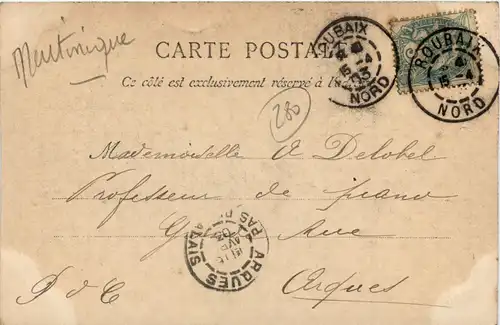 Martinique
CARTE POSTALE
Ce côté est exclusivement réservé à l'a
280
ROUBAIX
NORD
ROUBAIX
15 -4
NORD
Mademoiselle A Delobel
Professeur de piano
Rue
P d C
Arques
ARQUES
PAS DE CALAIS
AVR
03